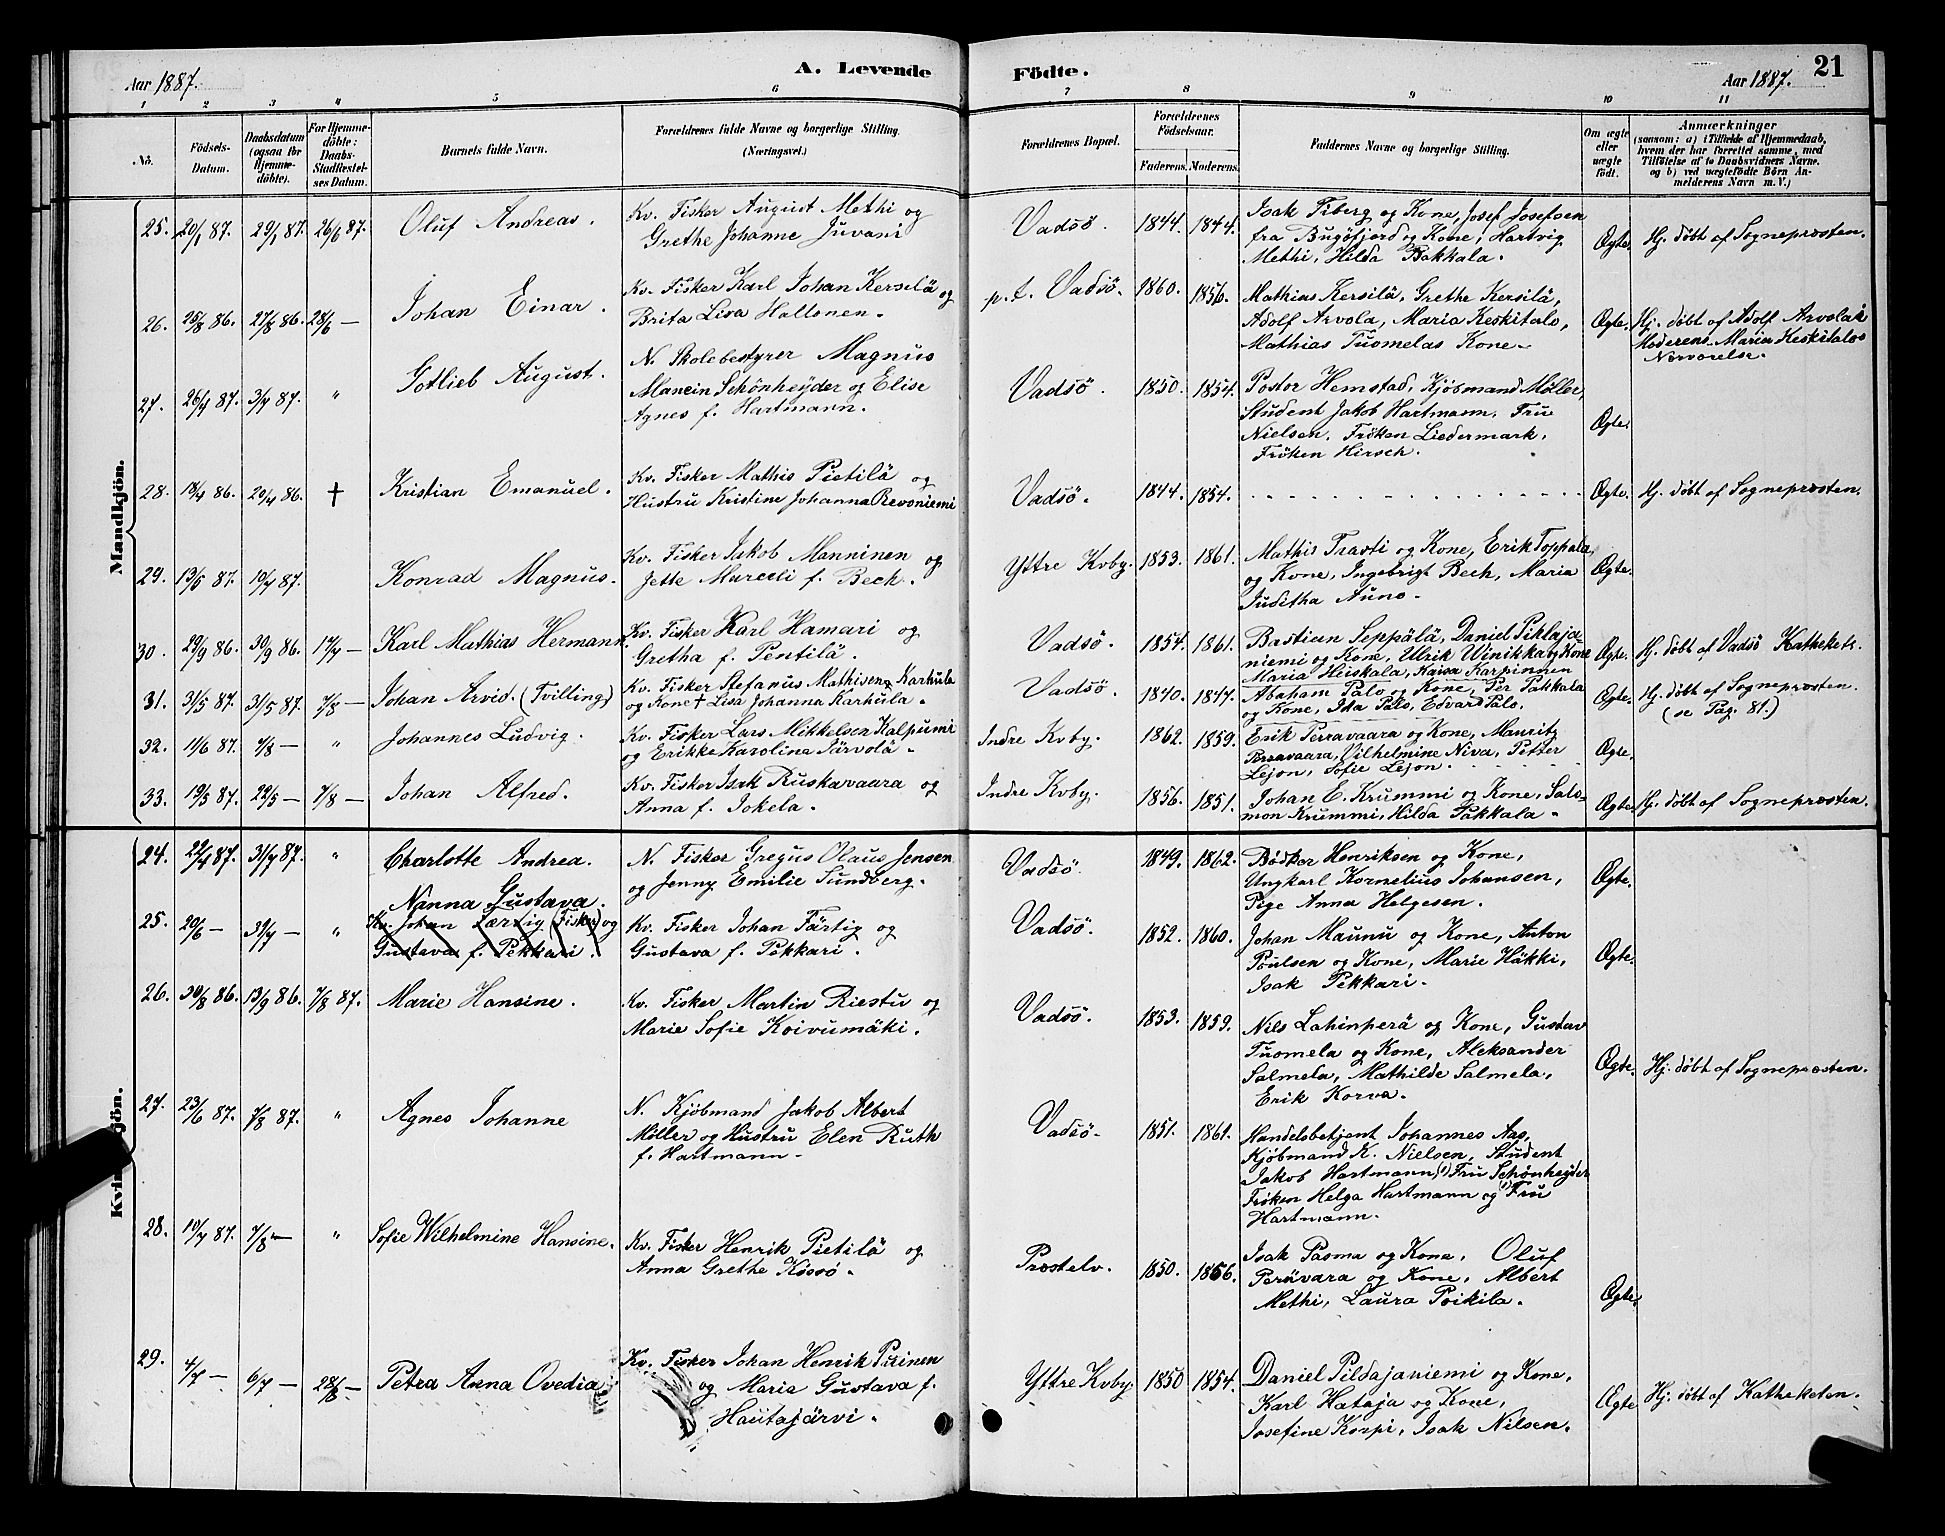 Aar 1887. A. Levende Födte. Aar 1887. 21
1 2 3 4 5 6 7 8 9 10 11
No.
Födsels-
Datum.
Daabsdatum
(ogsaa for
Hjemme-
döbte).
For Hjemme-
döbte:
Daabs-
Stadfæstel-
ses Datum.
Barnets fulde Navn.
Forældrenes fulde Navne og borgerlige Stilling.
(Næringsvei.)
Forældrenes Bopæl.
Forældrenes
Födselsaar.
Faderens. Moderens.
Faddernes Navne og borgerlige Stilling.
Om ægte
eller
uægte
födt.
Anmærkninger
(saasom: a) i Tilfælde af Hjemmedaab,
hvem der har forrettet samme, med
Tilföielse af to Daabsvidners Navne.
og b) ved uægtefödte Börn An-
melderens Navn m. V.)
Mandkjön.
25. 20/1 87. 29/1 87. 26/6 87. Oluf Andreas.
Kv. Fisker August Methi og
Grethe Johanne Juvani
Vadsö. 1844. 1844.
Isak Fiberg og Kone, Josef Josefsen
fra Bugöfjord og Kone, Hartvig
Methi, Hilda Pakkala.
Ægte. Hj. döbt af Sognepræsten.
26. 25/8 86. 27/8 86. 28/6 — Johan Einar.
Kv. Fisker Karl Johan Kersilä og
Brita Lisa Hallonen.
p.t. Vadsö. 1860. 1856.
Mathias Kersilä, Grethe Kersilä,
Adolf Arvola, Maria Keskitalo,
Mathias Tuomelas Kone.
Ægte. Hj. döbt af Adolf Arvola i
Moderens Maria Keskitalos
Nærværelse.
27. 26/4 87. 3/7 87. " Gotlieb August.
N. Skolebestyrer Magnus
Mancin Schönheyder og Elise
Agnes f. Hartmann.
Vadsö. 1850. 1854.
Pastor Hemstad, Kjöbmand Møller,
Student Jakob Hartmann, Fru
Nielsen, Fröken Liedermark,
Fröken Hirsch.
Ægte.
28. 18/4 86. 20/4 86. † Kristian Emanuel.
Kv. Fisker Mathis Pietilä og
Hustru Kristine Johanna Revoniemi
Vadsö. 1844. 1854.
Ægte. Hj. döbt af Sognepræsten.
29. 13/5 87. 10/7 87. Konrad Magnus.
Kv. Fisker Jakob Manninen og
Jette Mareeli f. Bech.
Yttre Kvby. 1853. 1861.
Mathis Trasti og Kone, Erik Toppala
og Kone, Ingebrigt Bech, Maria
Juditha Auno.
Ægte.
30. 29/9 86. 30/9 86. 17/7 — Karl Mathias Hermann.
Kv. Fisker Karl Hamari og
Gretha f. Pentilä.
Vadsö. 1854. 1861.
Bastian Seppälä, Daniel Piklaja-
niemi og Kone, Ulrik Winikka og Kone
Maria Heiskala, Kaisa Karpinen
Ægte. Hj. döbt af Vadsö Katheket.
31. 31/5 87. 31/5 87. 7/8 — Johan Arvid. (Tvilling)
Kv. Fisker Stefanus Mathisen Karhula
og Kone † Lisa Johanna Karhula.
Vadsö. 1840. 1847.
Abraham Palo og Kone, Per Pakkala
og Kone, Ida Palo, Edvard Palo.
Ægte. Hj. döbt af Sognepræsten.
(se Pag. 81.)
32. 11/6 87. 7/8 — " Johannes Ludvig.
Kv. Fisker Lars Mikkelsen Kalpumi
og Erikke Karolina Särvolä.
Indre Kvby. 1862. 1859.
Erik Perravaara og Kone, Mauritz
Perravaara, Vilhelmine Niva, Petter
Lejon, Sofie Lejon.
Ægte.
33. 19/5 87. 22/5 — 7/8 — Johan Alfred.
Kv. Fisker Isak Ruskavaara og
Anna f. Jokela.
Indre Kvby. 1856. 1851.
Johan E. Krummi og Kone, Salo-
mon Krummi, Hilda Pakkala.
Ægte. Hj. döbt af Sognepræsten.
24. 22/4 87. 31/7 87. " Charlotte Andrea.
N. Fisker Gregus Olaus Jensen
og Jenny Emilie Sundberg.
Vadsö. 1849. 1862.
Bödker Henriksen og Kone,
Ungkarl Kornelius Johansen,
Pige Anna Helgesen.
Ægte.
25. 20/6 — 31/7 — " Nanna Gustava.
Kv. Johan Færtig (Fisker) og
Gustava f. Pekkari.
Kv. Fisker Johan Färtig og
Gustava f. Pekkari.
Vadsö. 1852. 1860.
Johan Maunu og Kone, Anton
Poulsen og Kone, Marie Häkki,
Isak Pekkari.
Ægte.
26. 30/8 86. 13/9 86. 7/8 87. Marie Hansine.
Kv. Fisker Martin Riestu og
Marie Sofie Koivumäki.
Vadsö. 1853. 1859.
Nils Lahinperä og Kone, Gustav
Tuomela og Kone, Aleksander
Salmela, Mathilde Salmela,
Erik Korva.
Ægte. Hj. döbt af Sognepræsten.
27. 23/6 87. 7/8 87. " Agnes Johanne
N. Kjöbmand Jakob Albert
Møller og Hustru Elen Ruth
f. Hartmann.
Vadsö. 1851. 1861.
Handelsbetjent Johannes Aas,
Kjöbmand K. Nielsen, Student
Jakob Hartmann, (1) Fru Schönheyder
Fröken Helga Hartmann og (1) Fru
Hartmann.
28. 10/7 87. 7/8 — " Sofie Wilhelmine Hansine.
Kv. Fisker Henrik Pietilä og
Anna Grethe Kössö.
Præstelv. 1850. 1856.
Isak Pasma og Kone, Oluf
Perävara og Kone, Albert
Methi, Laura Poikila.
Ægte.
29. 4/7 — 6/7 — 28/8 — Petra Anna Ovedia.
Kv. Fisker Johan Henrik Pirinen
og Maria Gustava f.
Hautajärvi.
Yttre Kvby. 1850 1854.
Daniel Pildajaniemi og Kone,
Karl Hataja og Kone,
Josefine Korpi, Isak Nilsen.
Ægte Hj. döbt af Katheketen.